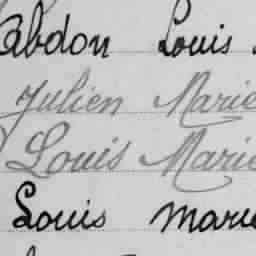 Abdon Louis
Julien Marie
Louis Marie
Louis Marie